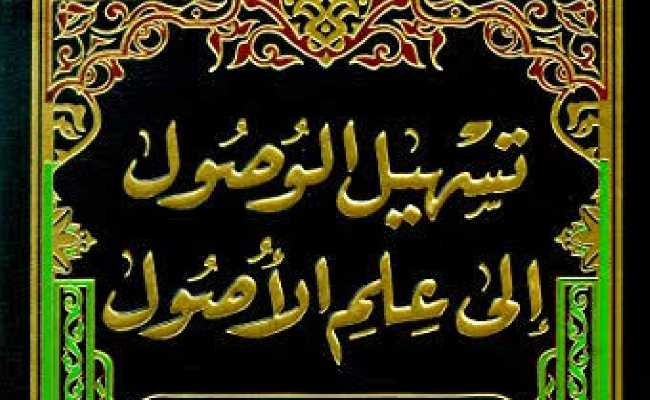 تسْهِيل الوُصُول
إلى عِلمِ الأُصُول